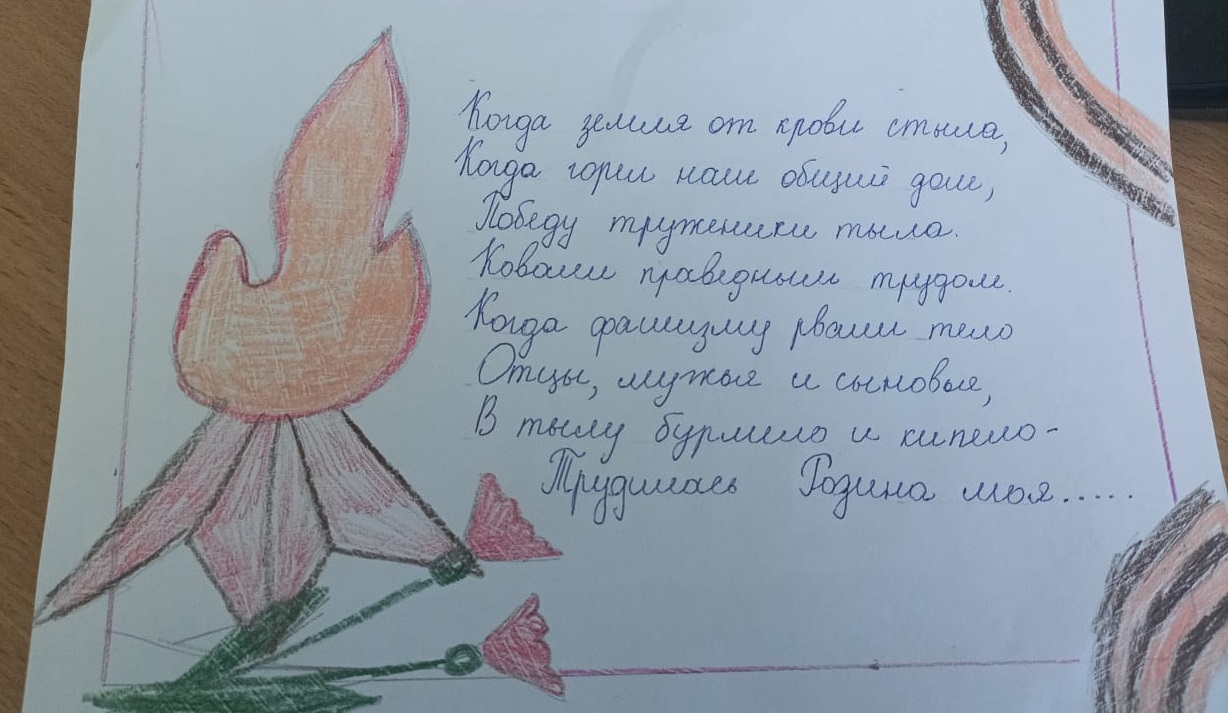 Когда земля от крови стыла,
Когда горел наш общий дом,
Победу труженики тыла.
Ковали праведным трудом.
Когда фашизму рвали тело
Отцы, мужья и сыновья,
В тылу бурлило и кипело-
Трудилась Родина моя.....